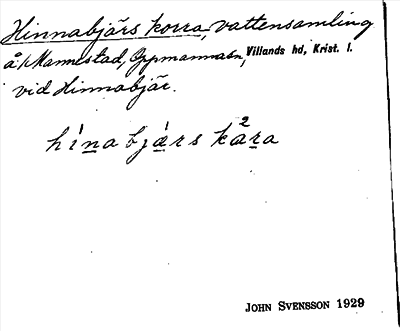 Hinnabjärs korra, vattensamling
å Mannestad, Oppmanna sn, Villands hd, Krist. l.
vid Hinnabjär.
hìn̲a bjǽrs kår̲a
2
JOHN SVENSSON 1929